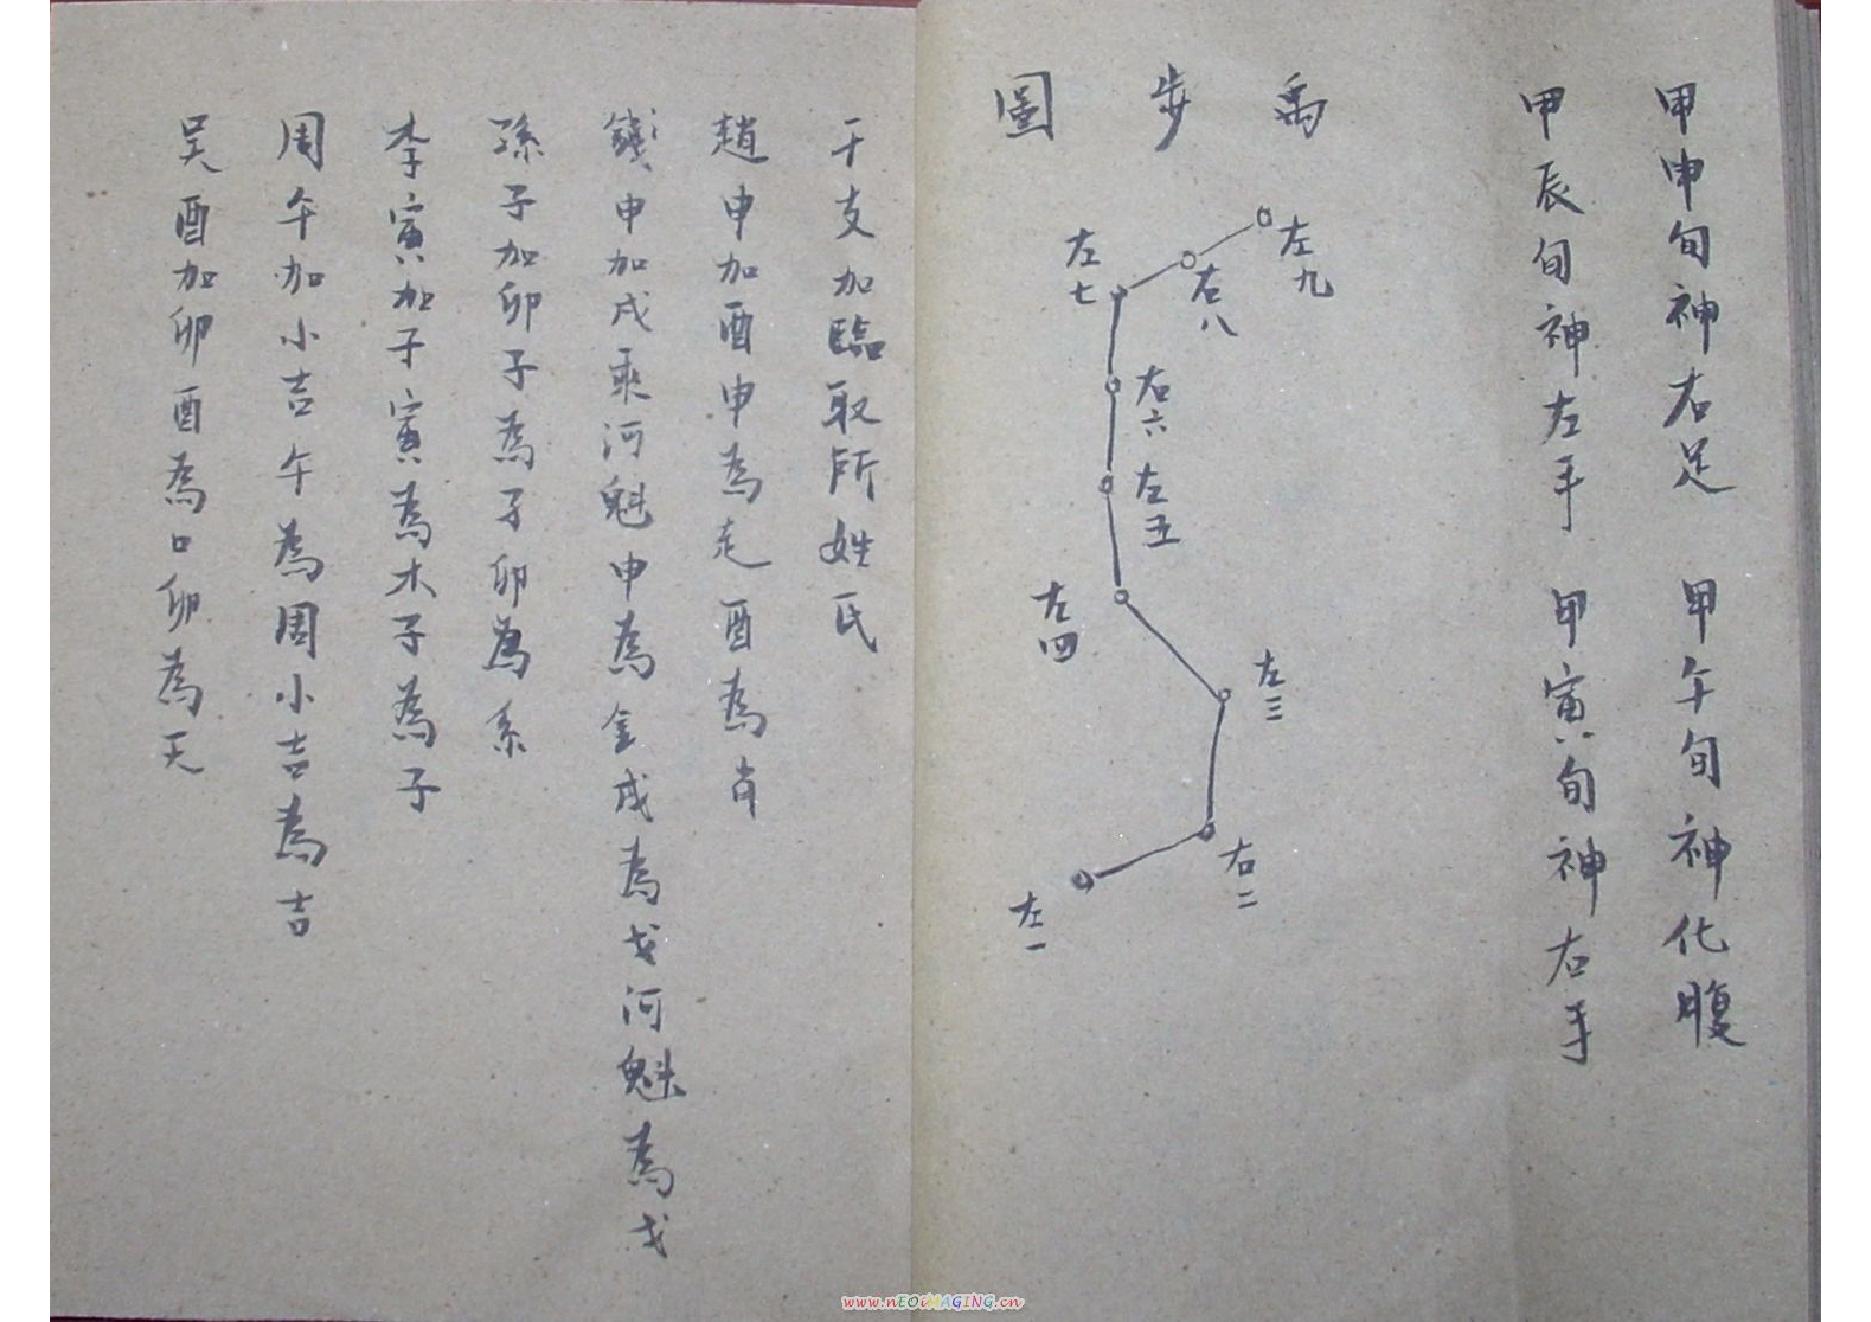 甲申旬神右足 甲午旬神化腹
甲辰旬神左手 甲寅旬神右手
禹步圖
左九
右八
左七
右六
左五
左四
左三
右二
左一
干支加臨取所姓氏
趙申加酉申為走酉為肖
錢申加戌乘河魁申為金戌為戈河魁為戈
孫子加卯子為子卯為系
李寅加子寅為木子為子
周午加小吉午為周小吉為吉
吴酉加卯酉為口卯為天
www.nEOiMAGING.cn